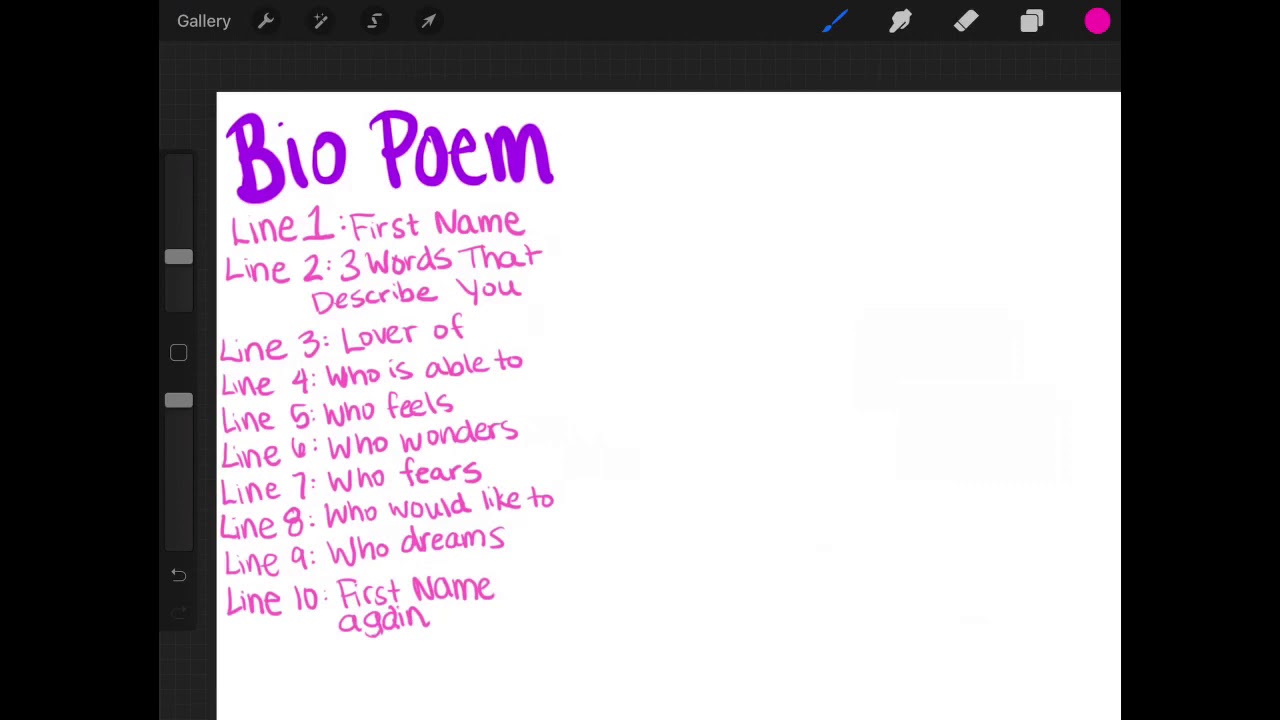 Gallery
Bio Poem
Line 1: First Name
Line 2: 3 Words That
Describe You
Line 3: Lover of
Line 4: Who is able to
Line 5: Who feels
Line 6: Who wonders
Line 7: Who fears
Line 8: Who would like to
Line 9: Who dreams
Line 10: First Name
again